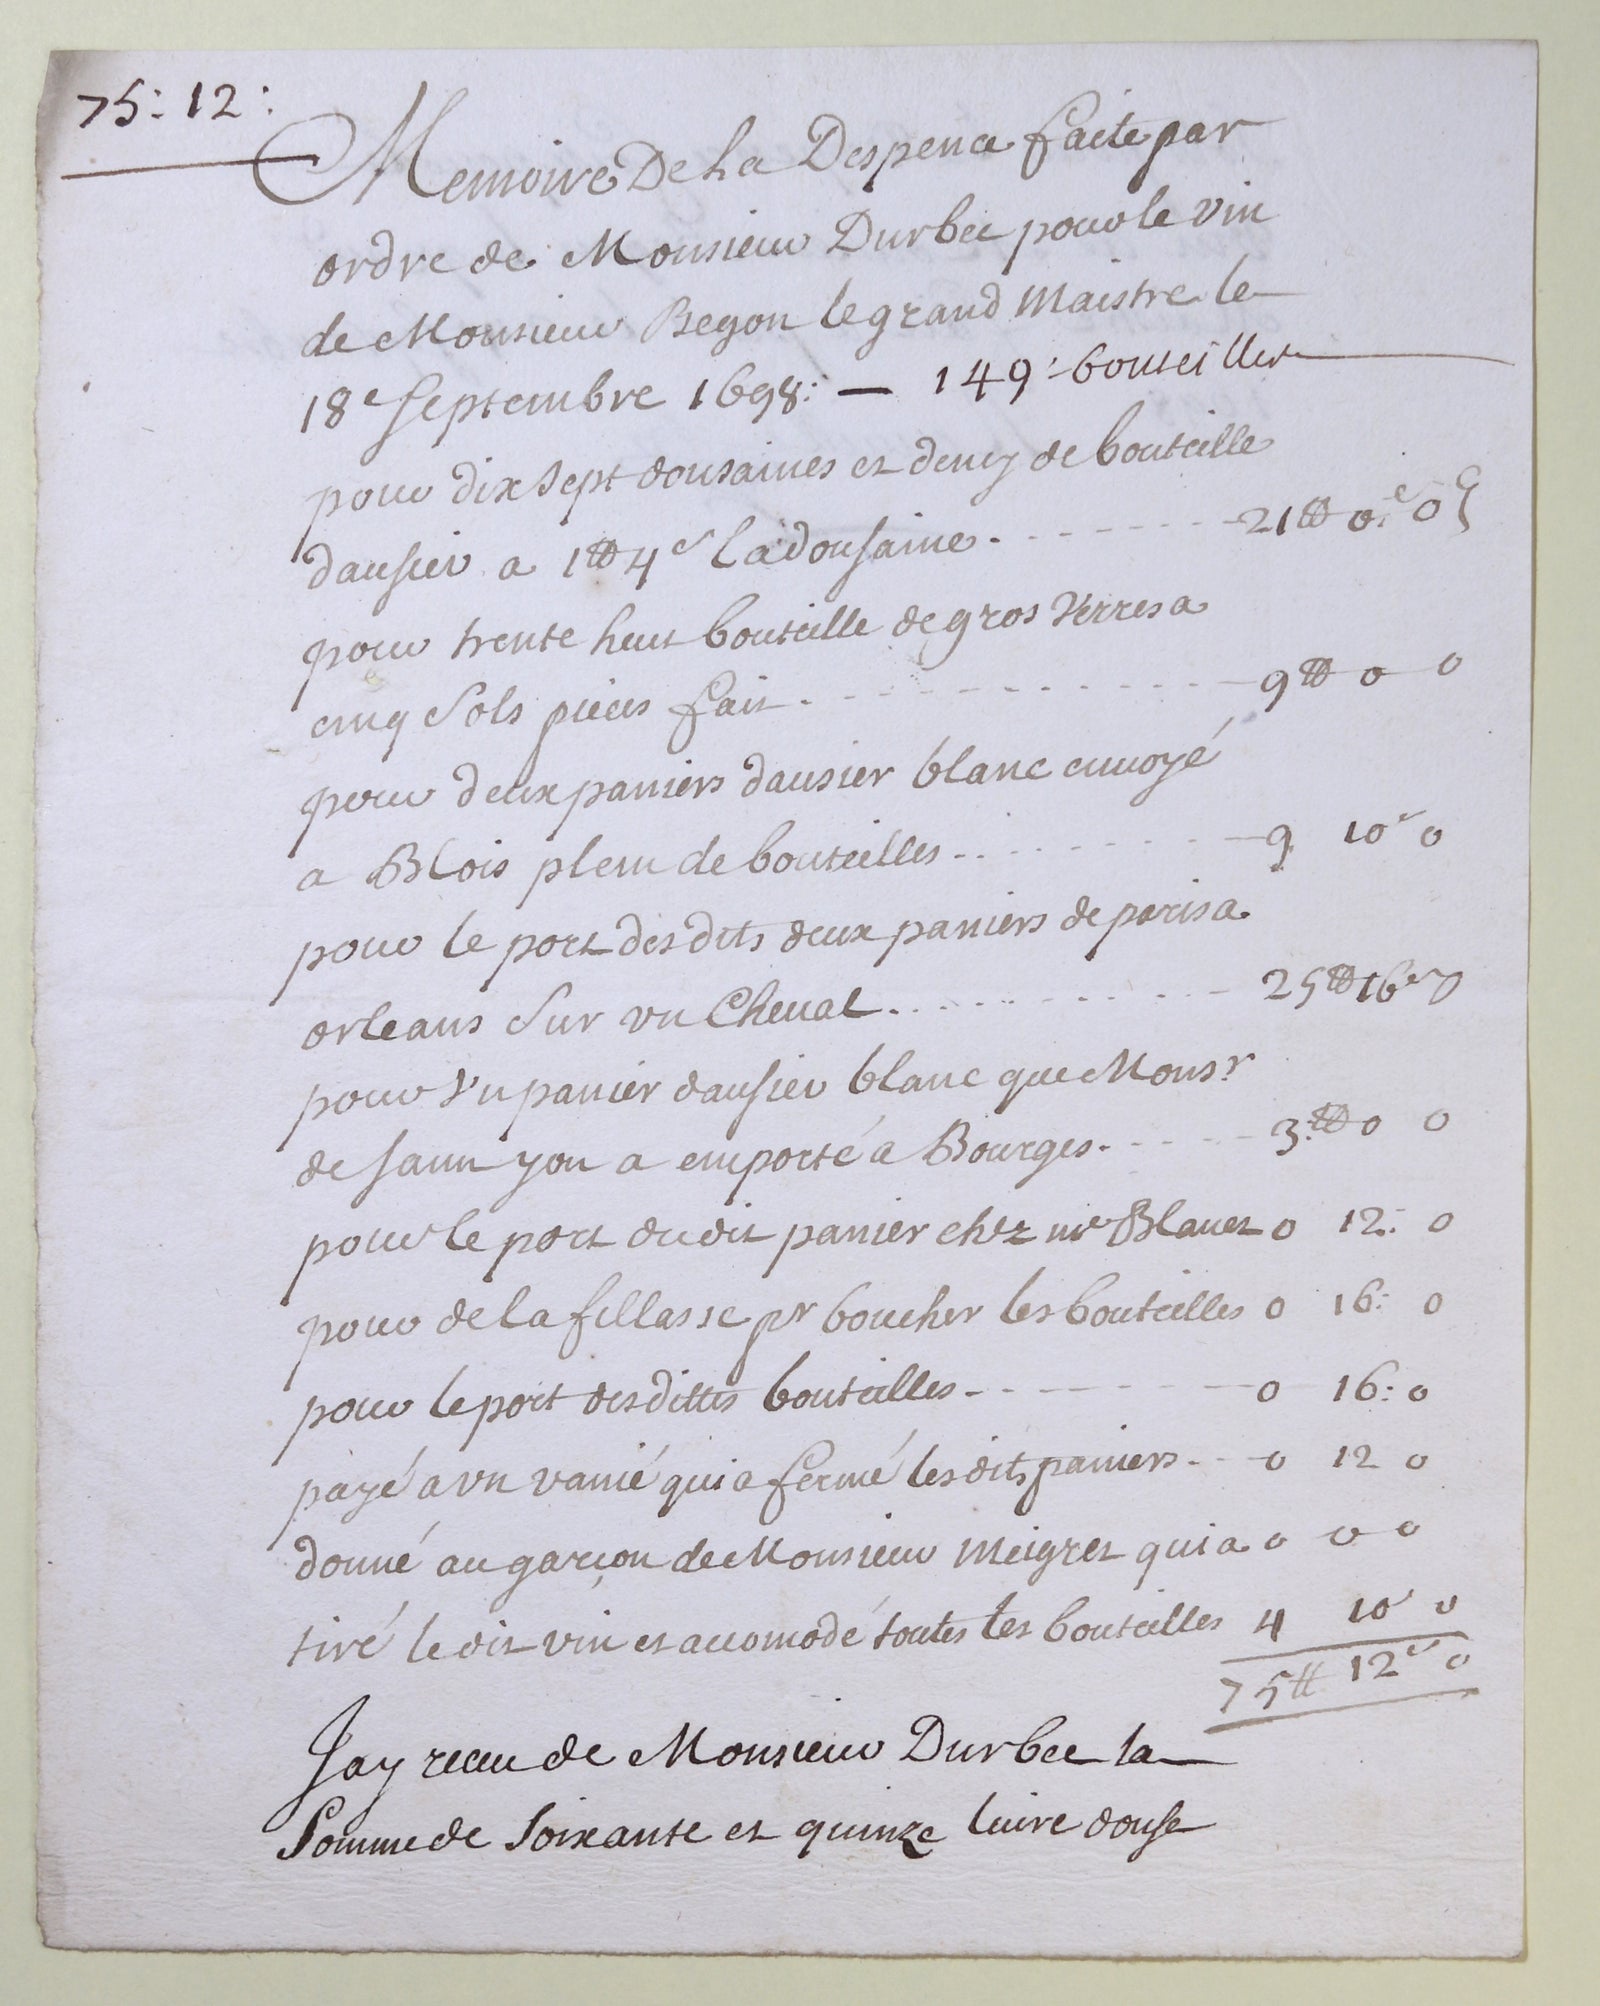 75: 12:
Memoire De La Despence faite par
ordre de Monsieur Durbec pour le vin
de Monsieur Begon le grand Maistre le
18e septembre 1698: — 149: bouteilles
pour dix sept dousaines et demy de bouteille
dausier a 1tt 4s la dousaine - - - - - - 21tt 0s 0d
pour trente huit bouteille de gros verres a
cinq sols pieces fait - - - - - - - - 9tt 0 0
pour deux paniers dausier blanc envoyé
a Blois plein de bouteilles - - - - - - 9 10s 0
pour le port desdits deux paniers de paris a
orleans sur vn cheval - - - - - - - 25tt 16s 0
pour vn panier dausier blanc que Monsr
de saint yon a emporté a Bourges - - - - 3tt 0 0
pour le port du dit panier chez mr Blanet 0 12: 0
pour de la fillasse pr boucher les bouteilles 0 16: 0
pour le port desdittes bouteilles - - - - - 0 16: 0
payé a vn vanié qui a fermé lesdits paniers - - 0 12 0
donné au garçon de Monsieur Meigret qui a 0 0 0
tiré le dit vin et accomodé toutes les bouteilles 4 10s 0
75tt 12s 0
Jay receu de Monsieur Durbec la
somme de soixante et quinze livre douse